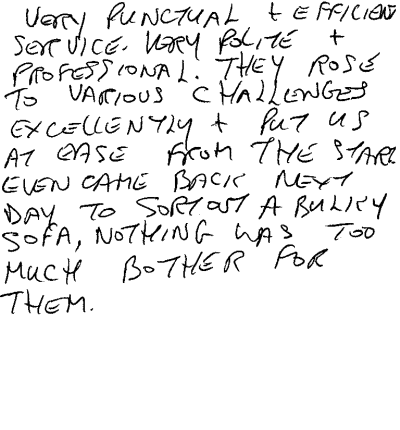 VERY PUNCTUAL + EFFICIEN
SERVICE. VERY POLITE +
PROFESSIONAL. THEY ROSE
TO VARIOUS CHALLENGES
EXCELLENTLY + PUT US
AT EASE FROM THE START.
EVEN CAME BACK NEXT
DAY TO SORT OUT A BULKY
SOFA, NOTHING WAS TOO
MUCH BOTHER FOR
THEM.